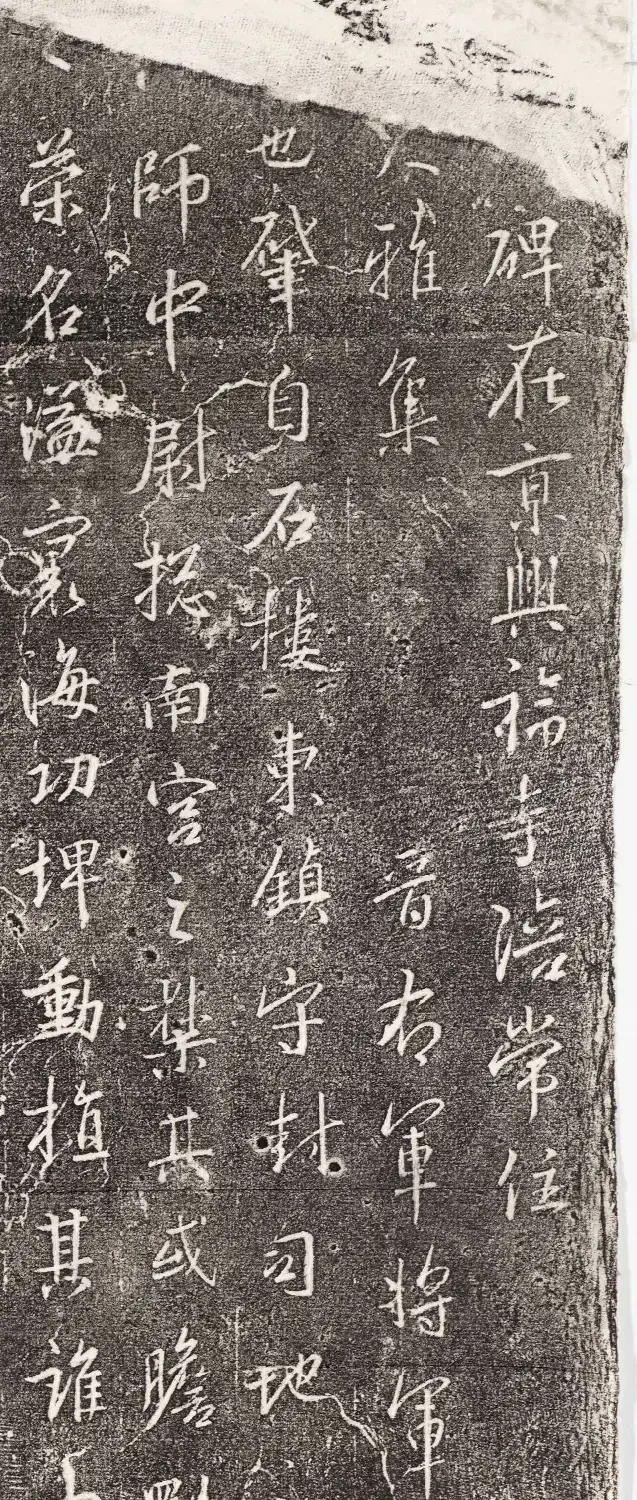 碑在京興福寺陪常住
人雅集 晋右軍將軍
也肇自石樓東鎮守封句地
師中尉揔南宮之禁共或瞻
榮名溢寰海功埤動植其誰